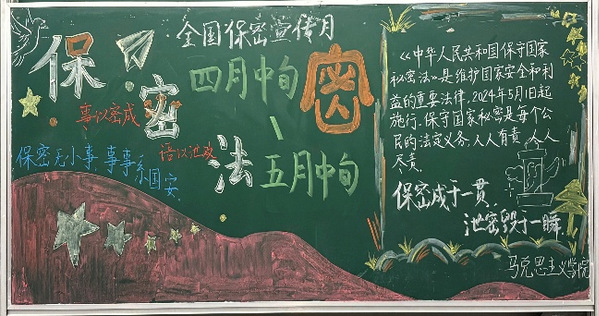 全国保密宣传月
保密法
四月中旬
~
五月中旬
密
事以密成
语以泄败
保密无小事,事事系国安
《中华人民共和国保守国家
秘密法》是维护国家安全和利
益的重要法律,2024年5月1日起
施行,保守国家秘密是每个公
民的法定义务,人人有责,人人
尽责.
保密成于一贯,
泄密毁于一瞬
马克思主义学院